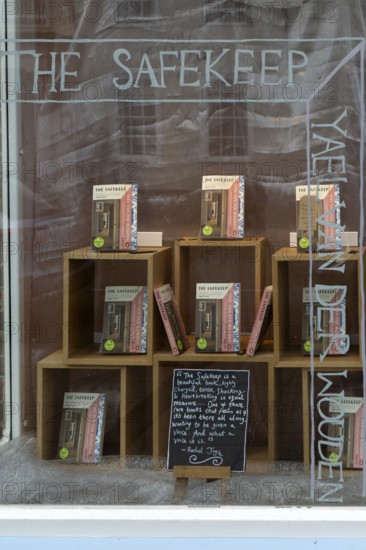 THE SAFEKEEP
YAEL VAN DER WOUDEN
THE SAFEKEEP
THE SAFEKEEP
THE SAFEKEEP
THE SAFEKEEP
THE SAFEKEEP
THE SAFEKEEP
"The Safekeep is a
beautiful book, highly
charged, tense, shocking
& heartbreaking in equal
measure... One of those
rare books that feels as if
it's been there all along
waiting to be given a
voice. And what a
voice it is."
- Rachel